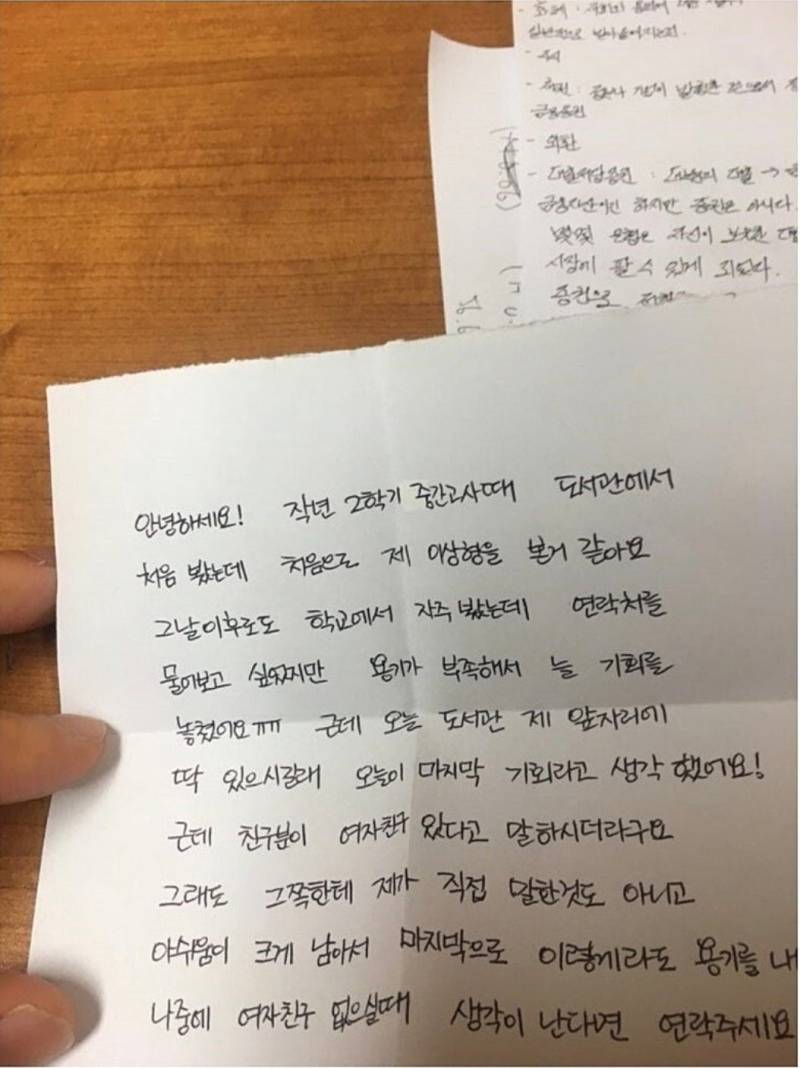 일반적으로
- 주식
금융증권
- 외환
금융자산이긴 하지만 증권은 아니다.
몇몇 은행은 자신이 보유한
시장에 팔 수 있게 되었다.
증권으로
안녕하세요! 작년 2학기 중간고사때 도서관에서
처음 봤는데 처음으로 제 이상형을 본거 같아요
그날이후로도 학교에서 자주 봤는데 연락처를
물어보고 싶었지만 용기가 부족해서 늘 기회를
놓쳤어요ㅠㅠ 근데 오늘 도서관 제 앞자리에
딱 있으시길래 오늘이 마지막 기회라고 생각했어요!
근데 친구분이 여자친구 있다고 말하시더라구요
그래도 그쪽한테 제가 직접 말한것도 아니고
아쉬움이 크게 남아서 마지막으로 이렇게라도 용기를 내
나중에 여자친구 없으실때 생각이 난다면 연락주세요